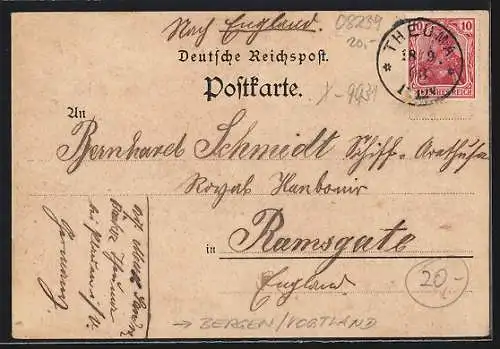 Nach England.
08239
20,-
Deutsche Reichspost.
Postkarte.
X-9931
THEUMA
18/9.
10
An
Bernhard Schmidt Schiff-Arethusa
Royal Harbour
in Ramsgate
England
Germany
20,-
→ BERGEN/VOGTLAND